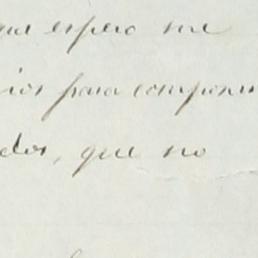 que espero me
ios para componer
dos, que no